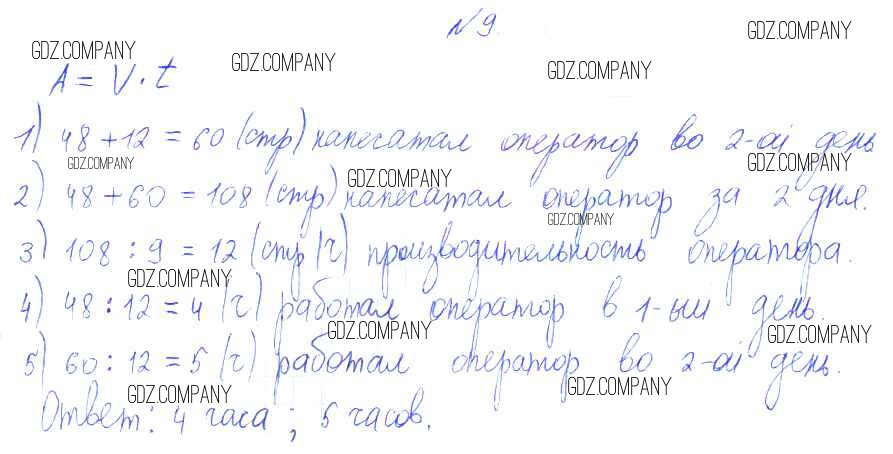 № 9.
GDZ.COMPANY
GDZ.COMPANY GDZ.COMPANY GDZ.COMPANY
A = V · t
1) 48 + 12 = 60 (стр) напечатал оператор во 2-ой день
GDZ.COMPANY GDZ.COMPANY
2) 48 + 60 = 108 (стр) напечатал оператор за 2 дня.
GDZ.COMPANY GDZ.COMPANY
3) 108 : 9 = 12 (стр/ч) производительность оператора.
GDZ.COMPANY
4) 48 : 12 = 4 (ч) работал оператор в 1-ый день.
GDZ.COMPANY GDZ.COMPANY
5) 60 : 12 = 5 (ч) работал оператор во 2-ой день.
GDZ.COMPANY GDZ.COMPANY
Ответ: 4 часа ; 5 часов.